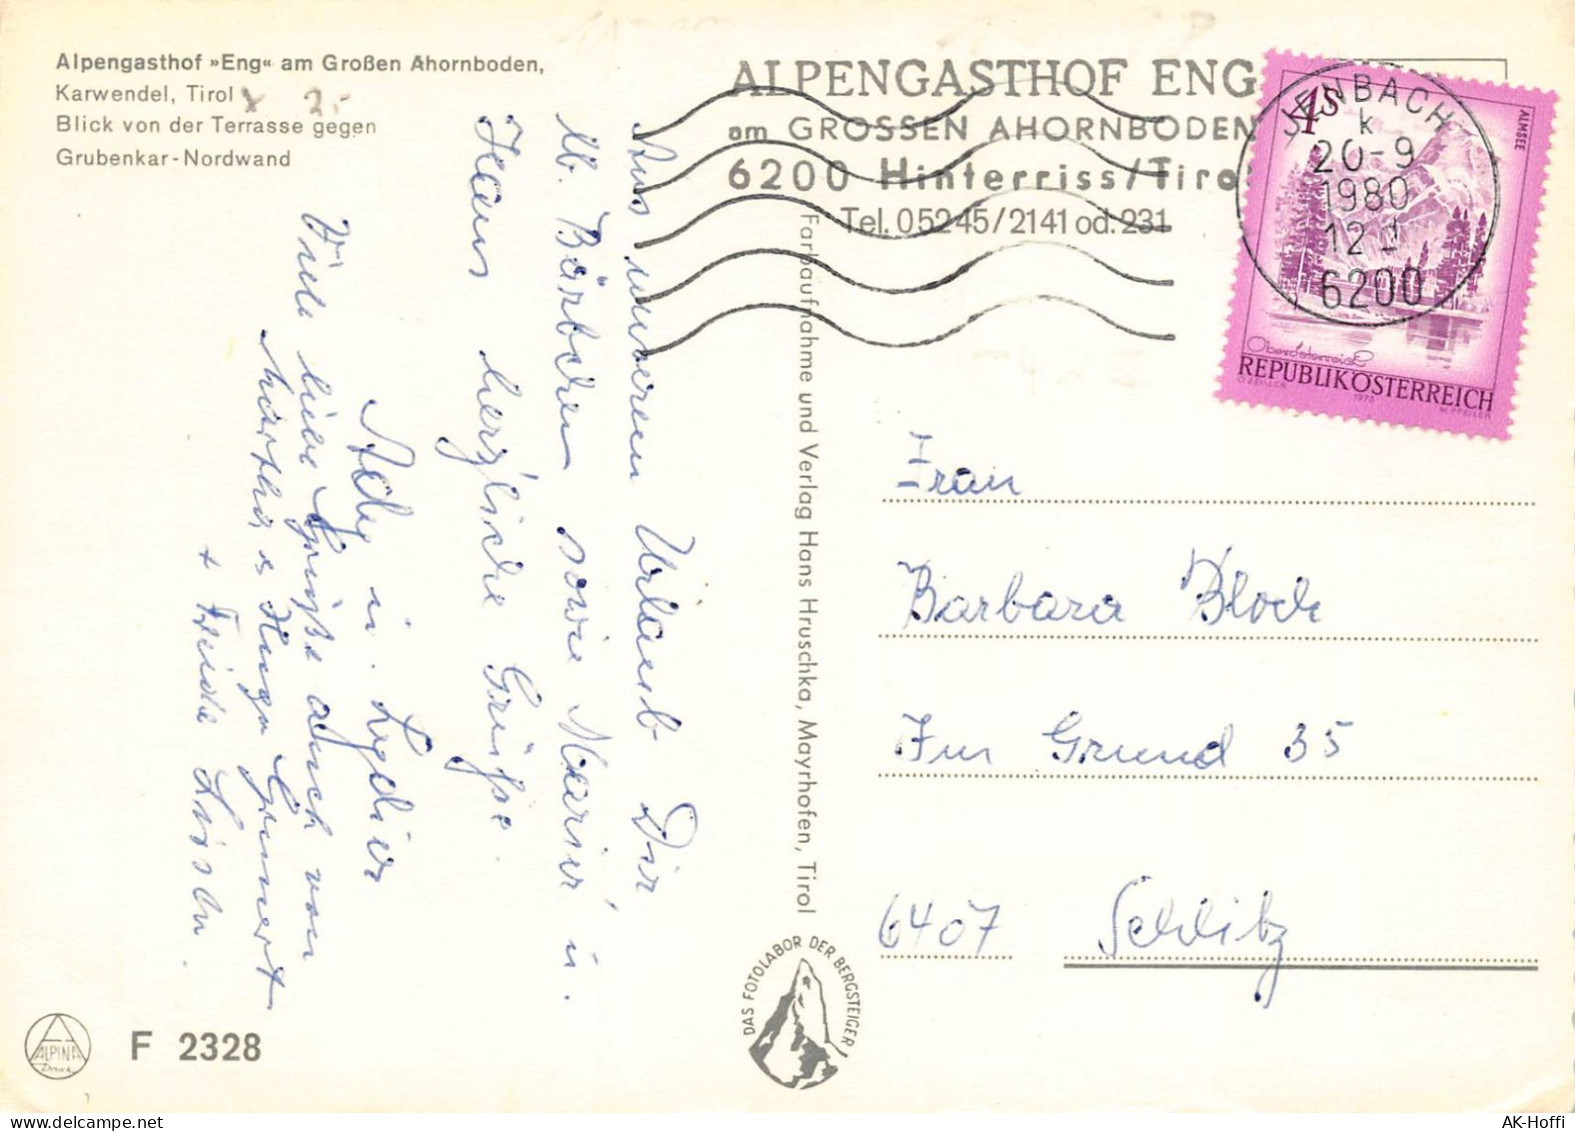 Alpengasthof »Eng« am Großen Ahornboden,
Karwendel, Tirol
Blick von der Terrasse gegen
Grubenkar-Nordwand
ALPENGASTHOF ENG
am GROSSEN AHORNBODEN
6200 Hinterriss/Tirol
Tel. 05245/2141 od. 231
JENBACH
k
20-9
1980
12
6200
4S
ALMSEE
Oberösterreich
REPUBLIK ÖSTERREICH
O. ZEILLER 1975 W. PFEILER
Aus unserem Urlaub Dir
lb. Bärbchen sowie Marie u.
Hans herzliche Grüße.
Ady u. Lydia
Viele liebe Grüße auch von
Martha & Hugo Grunert
+ Frieda
Farbaufnahme und Verlag Hans Hruschka, Mayrhofen, Tirol
Frau
Barbara Block
Im Grund 35
6407 Schlitz
DAS FOTOLABOR DER BERGSTEIGER
ALPINA
F 2328
AK-Hoffi